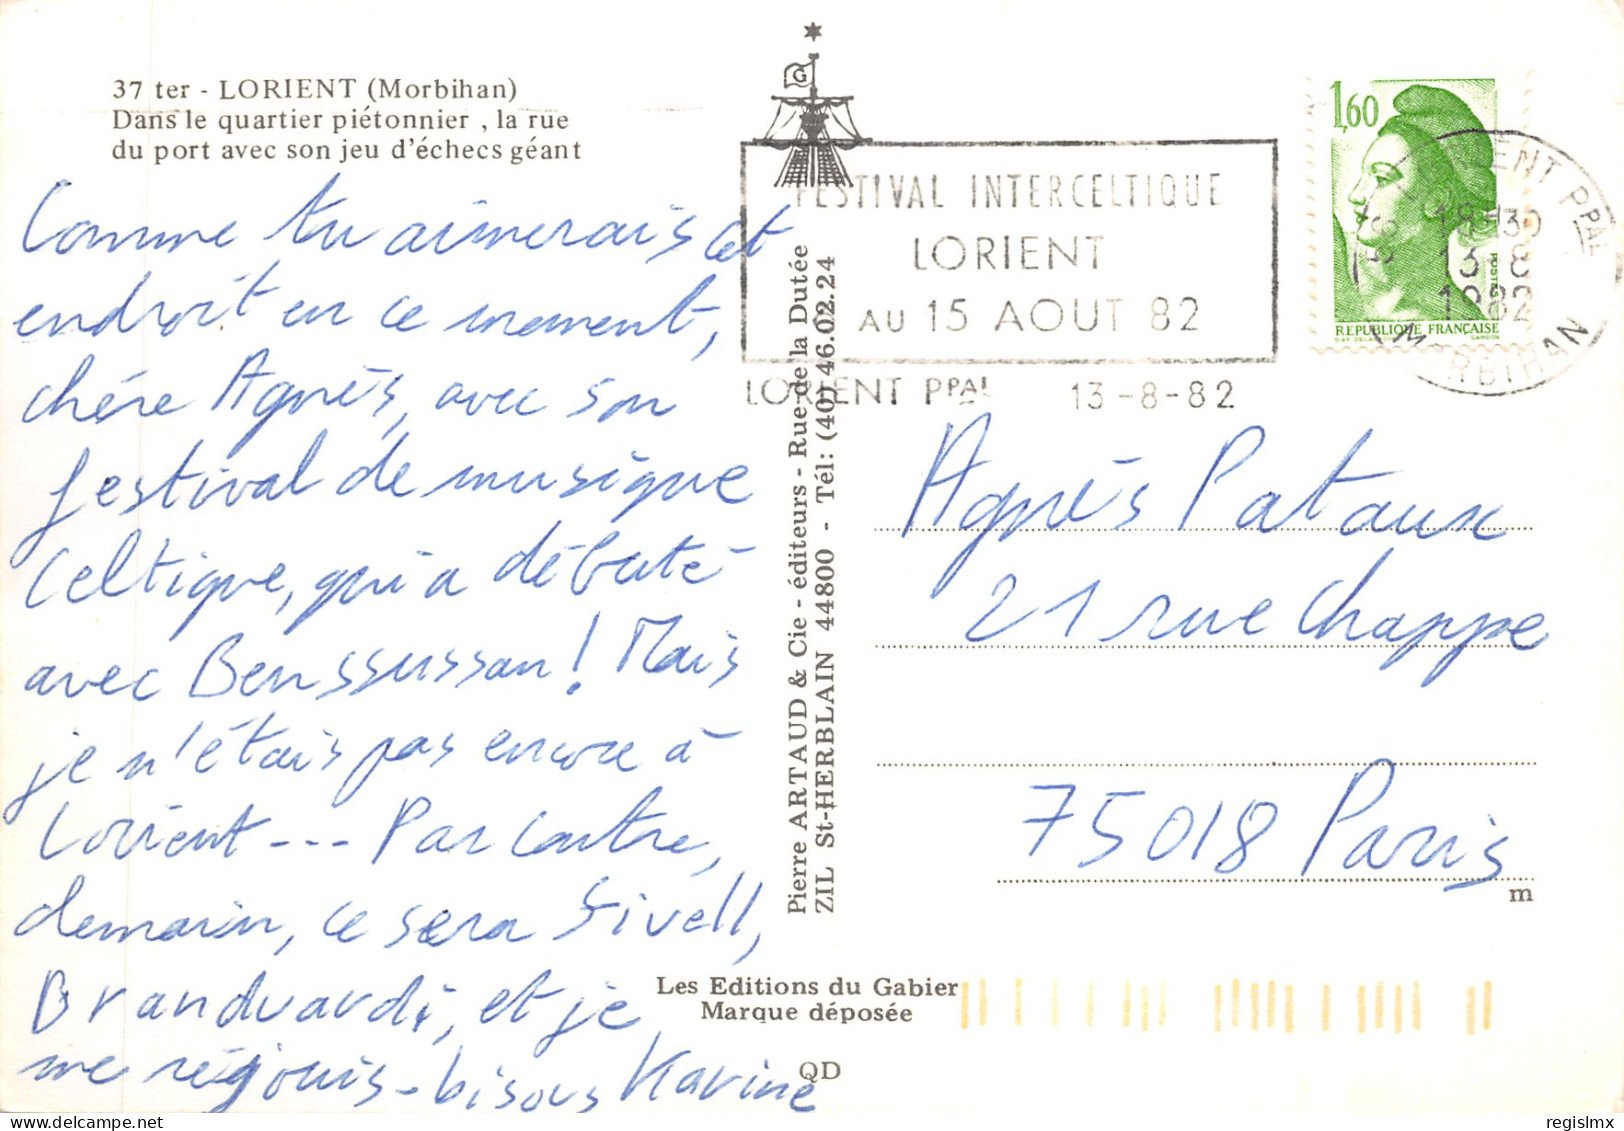 37 ter - LORIENT (Morbihan)
Dans le quartier piétonnier , la rue
du port avec son jeu d'échecs géant
Comme tu aimerais cet
endroit en ce moment,
chère Agnès, avec son
festival de musique
Celtique, qui a débuté
avec Benssussan! Mais
je n'étais pas encore à
Lorient --- Par contre,
demain, ce sera Sivell,
Branduardi, et je
me réjouis - bisous Karine
G
FESTIVAL INTERCELTIQUE
LORIENT
AU 15 AOUT 82
LORIENT PPAL 13-8-82
1,60
POSTES
REPUBLIQUE FRANÇAISE
LORIENT PPAL
18H30
13-8
1982
MORBIHAN
Pierre ARTAUD & Cie - éditeurs - Rue de la Dutée
ZIL St-HERBLAIN 44800 - Tél: (40) 46.02.24
Agnès Pataux
21 rue Chappe
75018 Paris
m
Les Editions du Gabier
Marque déposée
QD
regislmx